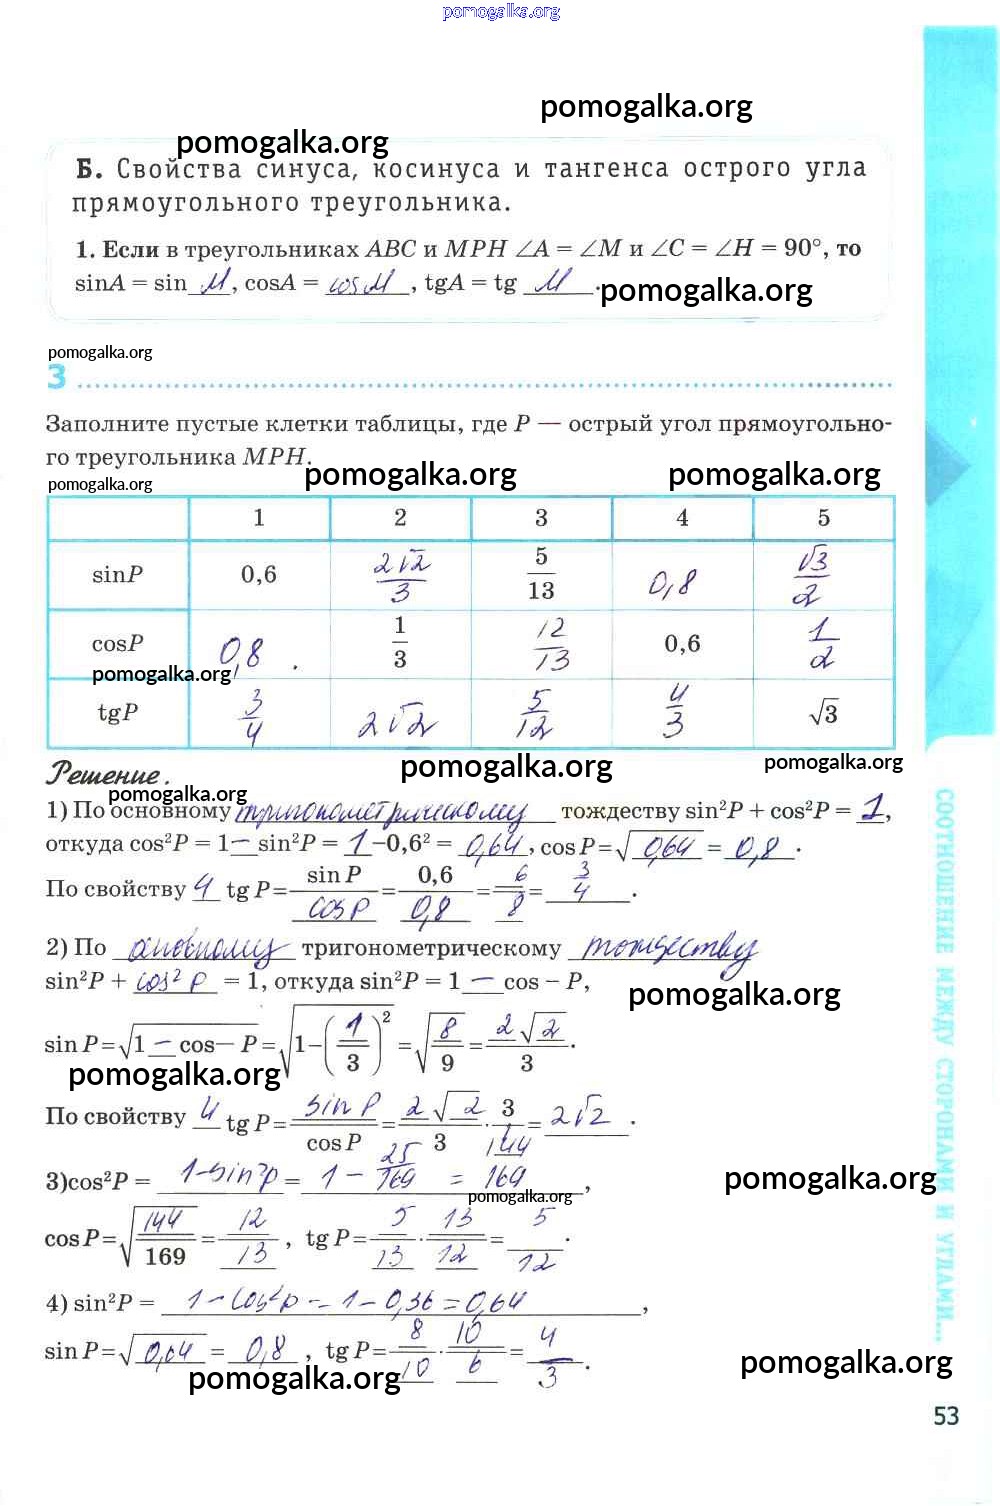 pomogalka.org
pomogalka.org
pomogalka.org
Б. Свойства синуса, косинуса и тангенса острого угла
прямоугольного треугольника.
1. Если в треугольниках ABC и MPH ∠A = ∠M и ∠C = ∠H = 90°, то
sinA = sin M, cosA = cos M, tgA = tg M.
pomogalka.org
pomogalka.org
3
Заполните пустые клетки таблицы, где P — острый угол прямоугольно-
го треугольника MPH.
pomogalka.org pomogalka.org
pomogalka.org
1 2 3 4 5
sinP 0,6 2√2/3 5/13 0,8 √3/2
cosP 0,8 1/3 12/13 0,6 1/2
pomogalka.org
tgP 3/4 2√2 5/12 4/3 √3
Решение.
pomogalka.org pomogalka.org
pomogalka.org
1) По основному тригонометрическому тождеству sin²P + cos²P = 1,
откуда cos²P = 1 − sin²P = 1 −0,6² = 0,64, cos P = √0,64 = 0,8.
По свойству 4 tg P = sin P/cos P = 0,6/0,8 = 6/8 = 3/4.
2) По основному тригонометрическому тождеству
sin²P + cos² P = 1, откуда sin²P = 1 − cos – P,
pomogalka.org
sin P = √1 − cos– P = √1–(1/3)² = √8/9 = 2√2/3.
pomogalka.org
По свойству 4 tg P = sin P/cos P = 2√2/3 · 3/1 = 2√2.
3)cos²P = 1-sin²P = 1 − 25/169 = 144/169,
pomogalka.org
pomogalka.org
cos P = √144/169 = 12/13, tg P = 5/13 · 13/12 = 5/12.
4) sin²P = 1 - cos²p = 1 - 0,36 = 0,64,
sin P = √0,64 = 0,8, tg P = 8/10 · 10/6 = 4/3.
pomogalka.org
pomogalka.org
СООТНОШЕНИЕ МЕЖДУ СТОРОНАМИ И УГЛАМИ...
53